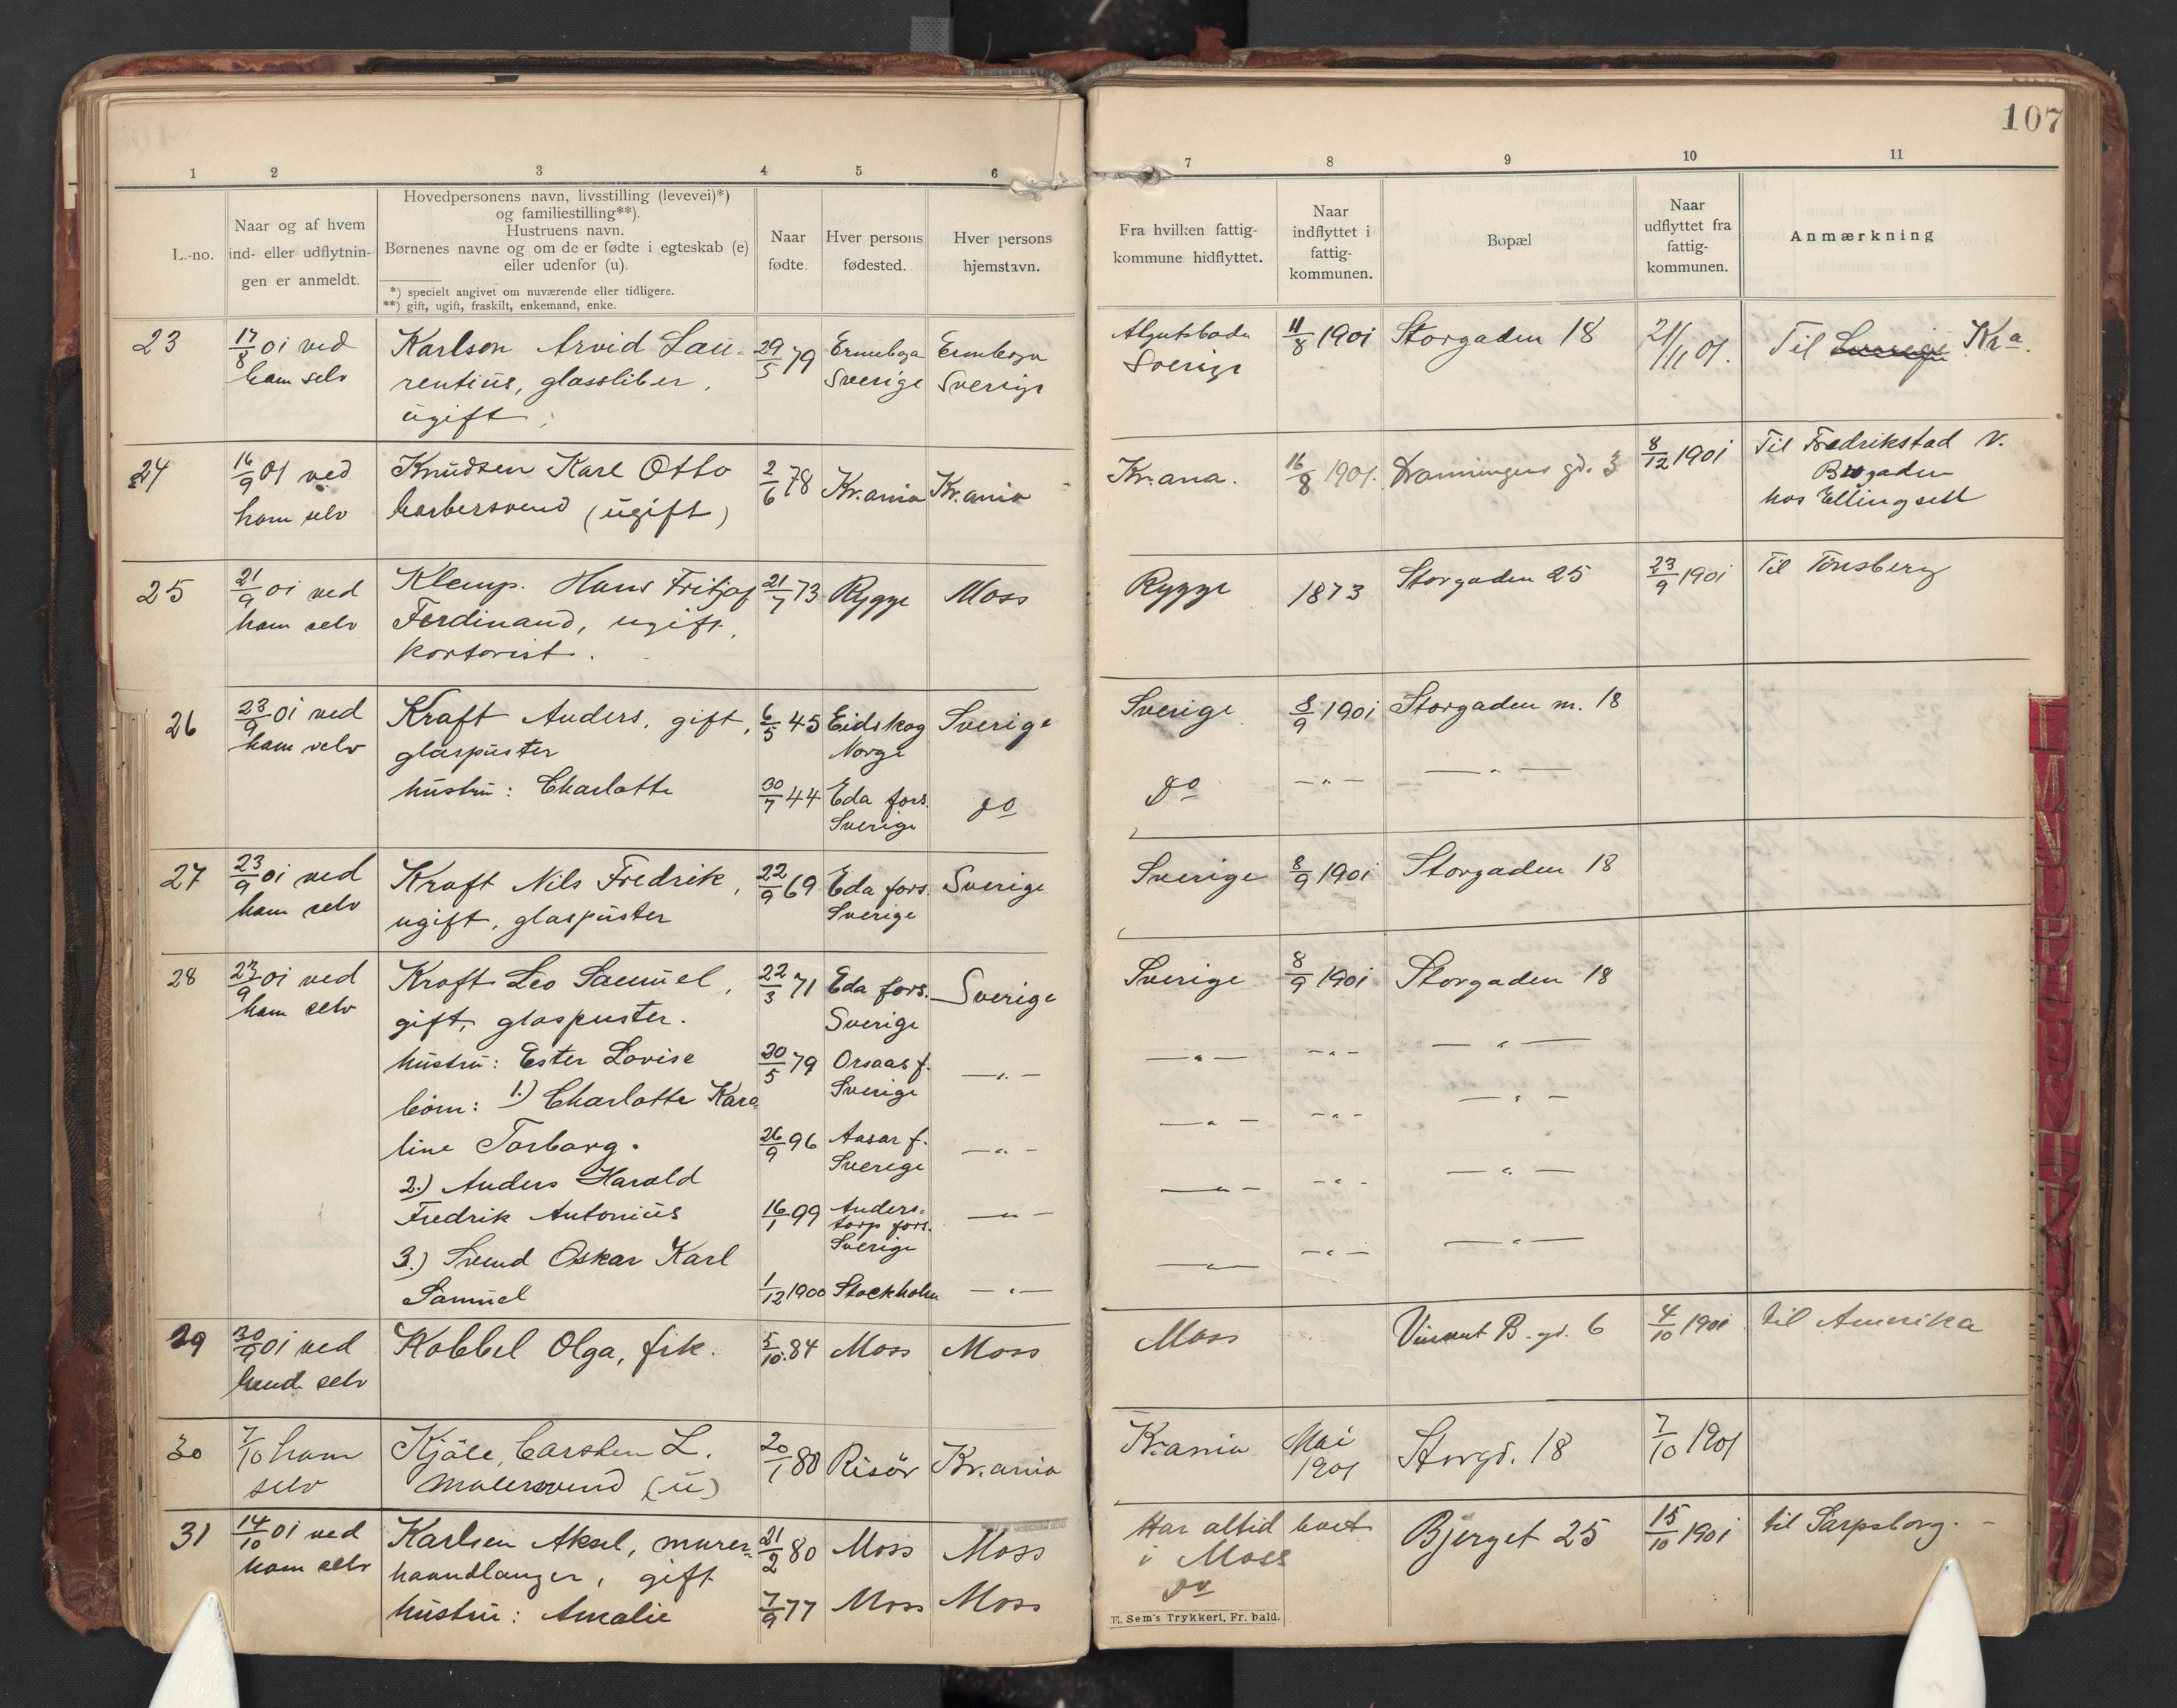 107
1 2 3 4 5 6 7 8 9 10 11
L.-no.
Naar og af hvem
ind- eller udflytnin-
gen er anmeldt.
Hovedpersonens navn, livsstilling (levevei)*)
og familiestilling**).
Hustruens navn.
Børnenes navne og om de er fødte i egteskab (e)
eller udenfor (u).
*) specielt angivet om nuværende eller tidligere.
**) gift, ugift, fraskilt, enkemand, enke.
Naar
fødte.
Hver persons
fødested.
Hver persons
hjemstavn.
Fra hvilken fattig-
kommune hidflyttet.
Naar
indflyttet i
fattig-
kommunen.
Bopæl
Naar
udflyttet fra
fattig-
kommunen.
Anmærkning
23 17/8 01 ved Karlson Arvid Lau- 29/5 79 11/8 1901 Storgaden 18 21/11 01. Til Sverige Kra.
ham selv rentius, glassliber, Sverige Sverige Sverige
ugift.
24 16/9 01 ved Knudsen Karl Otto 2/6 78 Kr.ania Kr.ania Kr.ana. 16/8 1901. Dronningens gd. 3 8/12 1901 Til Fredrikstad V.
ham selv barbersvend (ugift) Brogaden
hos Ellingsen
25 21/9 01 ved Klemp. Hans Fritjof 21/7 73 Rygge Moss Rygge 1873 Storgaden 25 23/9 1901 Til Tønsberg
ham selv Ferdinand, ugift,
kontorist.
26 23/9 01 ved Kraft Anders, gift, 6/5 45 Eidskog Sverige Sverige 8/9 1901 Storgaden m. 18
ham selv glaspuster Norge
hustru: Charlotte 30/7 44 Eda fors. do do — " — — " —
Sverige
27 23/9 01 ved Kraft Nils Fredrik, 22/9 69 Eda fors. Sverige Sverige 8/9 1901 Storgaden 18
ham selv ugift, glaspuster Sverige
28 23/9 01 ved Kraft Leo Samuel, 22/3 71 Eda fors. Sverige Sverige 8/9 1901 Storgaden 18
ham selv gift, glaspuster. Sverige
hustru: Ester Lovise 20/5 79 Orsaas f. — " — — " — — " — — " —
Sverige
børn: 1.) Charlotte Karo-
line Torborg. 26/9 96 Aasar f. — " — — " — — " — — " —
Sverige
2.) Anders Harald
Fredrik Antonius 16/1 99 Anders- — " — — " — — " — — " —
torp fors.
Sverige
3.) Svend Oskar Karl
Samuel 1/12 1900 Stockholm — " — — " — — " — — " —
29 30/9 01 ved Kobbel Olga, frk. 5/10 84 Moss Moss Moss Vincent B. gd. 6 4/10 1901 til Amerika
hend. selv
30 7/10 ham Kjöle, Carsten L. 20/1 80 Risör Kr.ania Kr.ania Mai Storgd. 18 7/10 1901
selv malersvend (u) 1901
31 14/10 01 ved Karlsen Aksel, murer- 21/2 80 Moss Moss Har altid boet Bjerget 25 15/10 1901 til Sarpsborg. —
ham selv haandlanger, gift i Moss
hustru: Amalie 7/9 77 Moss Moss do
E. Sem's Trykkeri, Fr. hald.